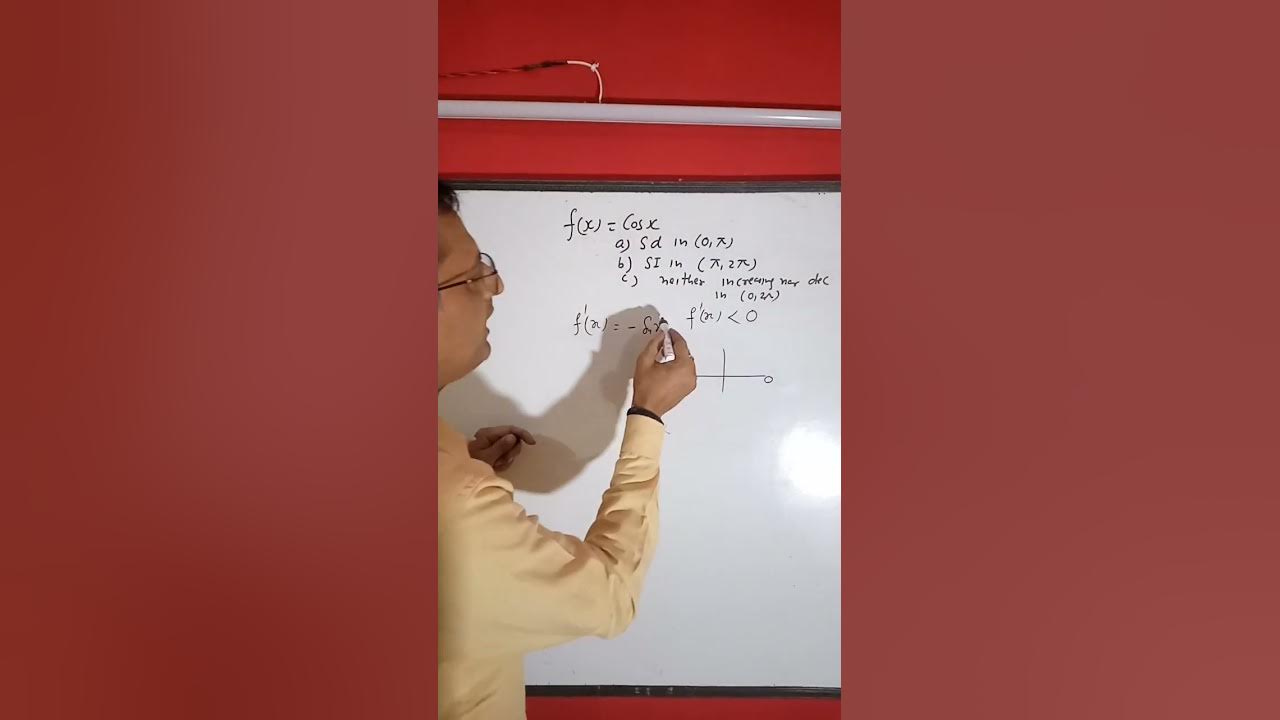 f(x) = Cosx
a) Sd in (0, π)
b) SI in (π, 2π)
c) neither increasing nor dec
in (0, 2π)
f'(x) = - Sinx f'(x) < 0
0